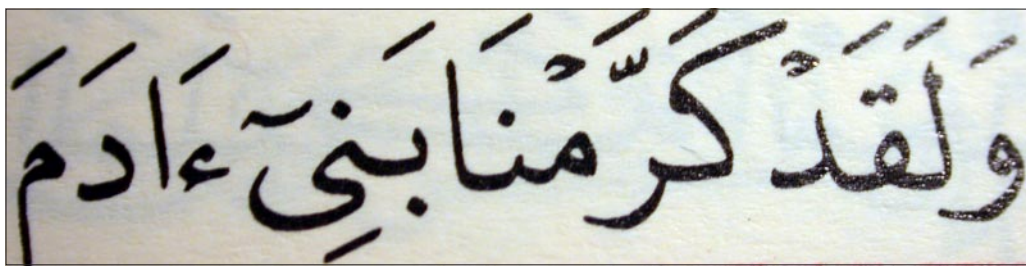 وَلَقَدْ كَرَّمْنَا بَنِىٓ ءَادَمَ